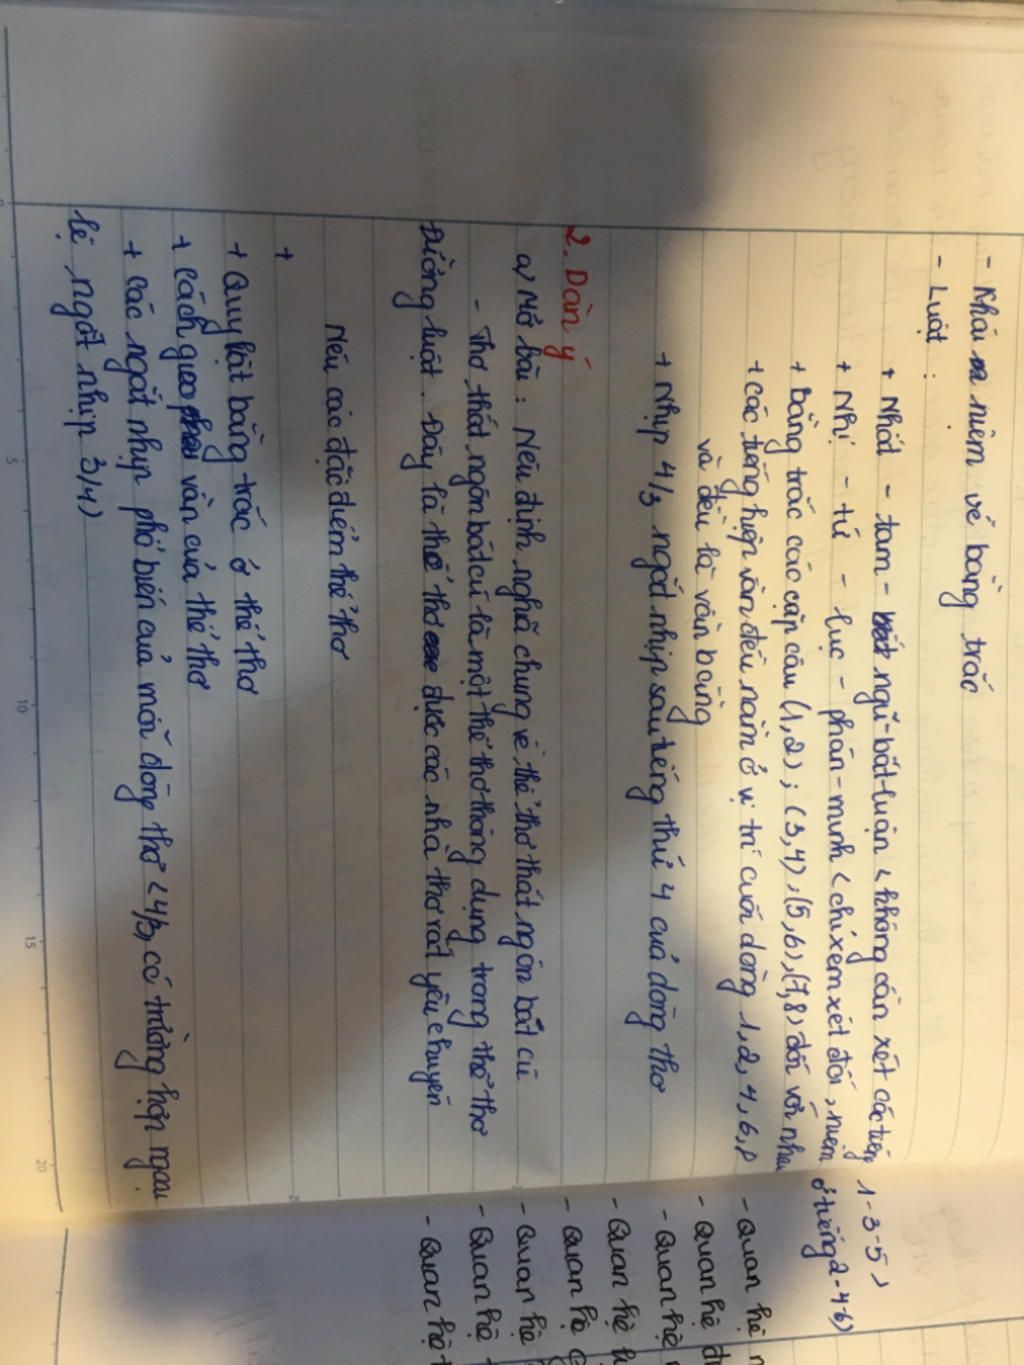 - Khái niệm về bằng trắc
- Luật :
+ Nhất - tam - ngũ - bất luận < không cần xét các tiếng 1-3-5)
+ Nhị - tứ - lục - phân - minh < chỉ xem xét đối, niêm ở tiếng 2-4-6)
+ Bằng trắc các cặp câu (1,2); (3,4), (5,6), (7,8) đối với nhau
+ Các tiếng hiệp vần đều nằm ở vị trí cuối dòng 1,2,4,6,8
và đều là vần bằng
+ Nhịp 4/3 ngắt nhịp sau tiếng thứ 4 của dòng thơ
2. Dàn ý
a) Mở bài : Nêu định nghĩa chung về thể thơ thất ngôn bát cú
- Thơ thất ngôn bát cú là một thể thơ thông dụng trong thể thơ
Đường luật. Đây là thể thơ được các nhà thơ rất yêu chuyến
Nêu các đặc điểm thể thơ
+
+ Quy luật bằng trắc ở thể thơ
+ Cách gieo vần của thể thơ
+ các ngắt nhịp phổ biến của mỗi dòng thơ < 4/3, có trường hợp ngoại
lệ, ngắt nhịp 3/4)
- Quan hệ
- Quan hệ
- Quan hệ
- Quan hệ
- Quan hệ
- Quan hệ
- Quan hệ
- Quan hệ
5
10
15
20